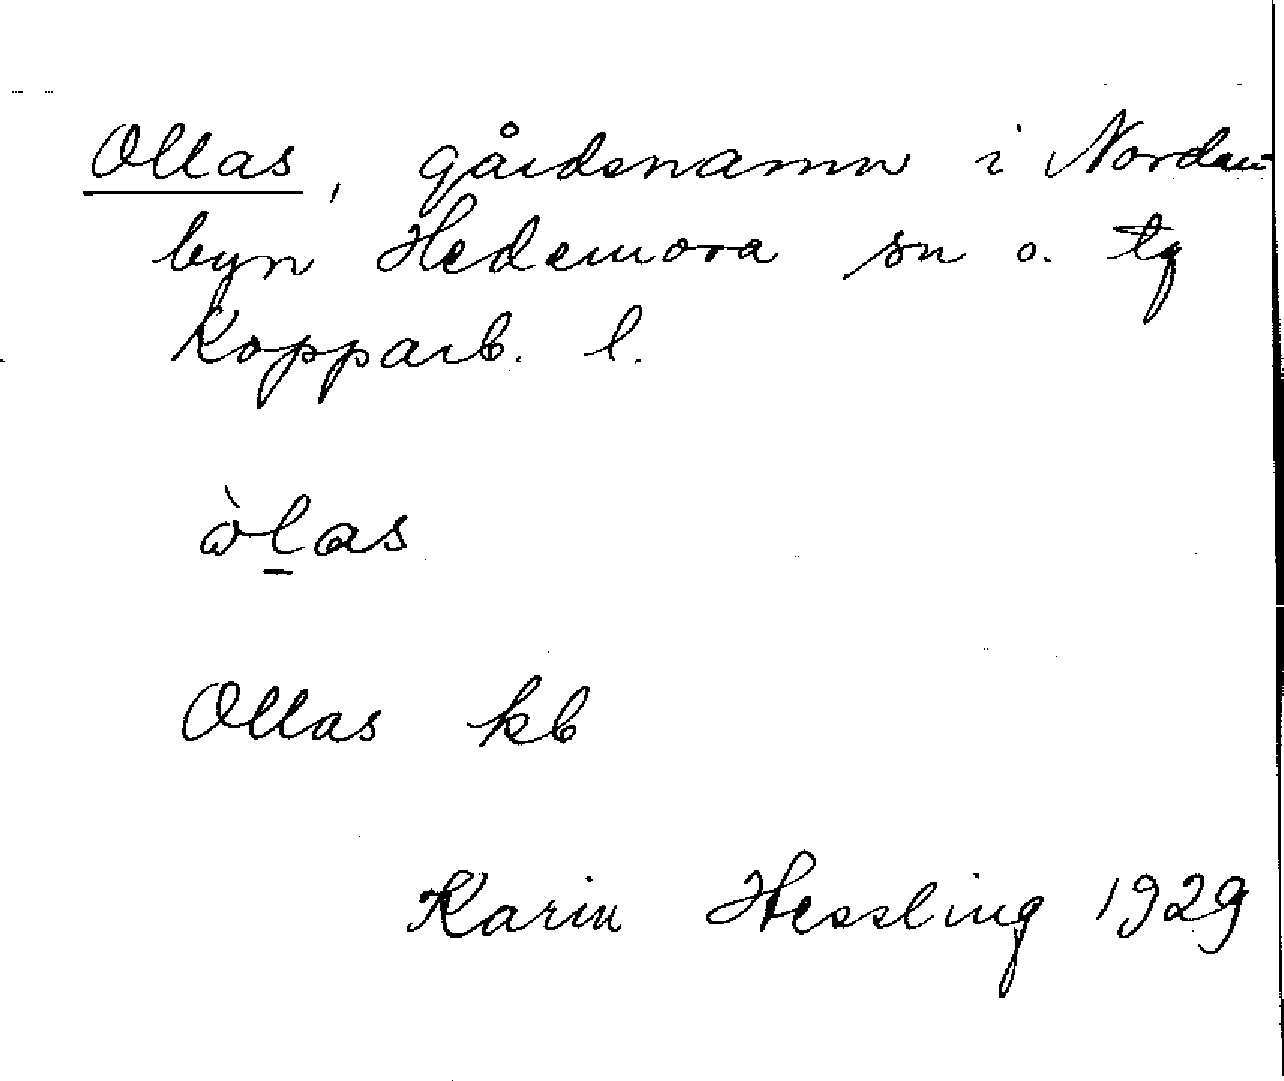 Ollas, gårdsnamn i Norden
byn Hedemora sn o. tg
Kopparb. l.
òl̲as
Ollas kb
Karin Hessling 1929